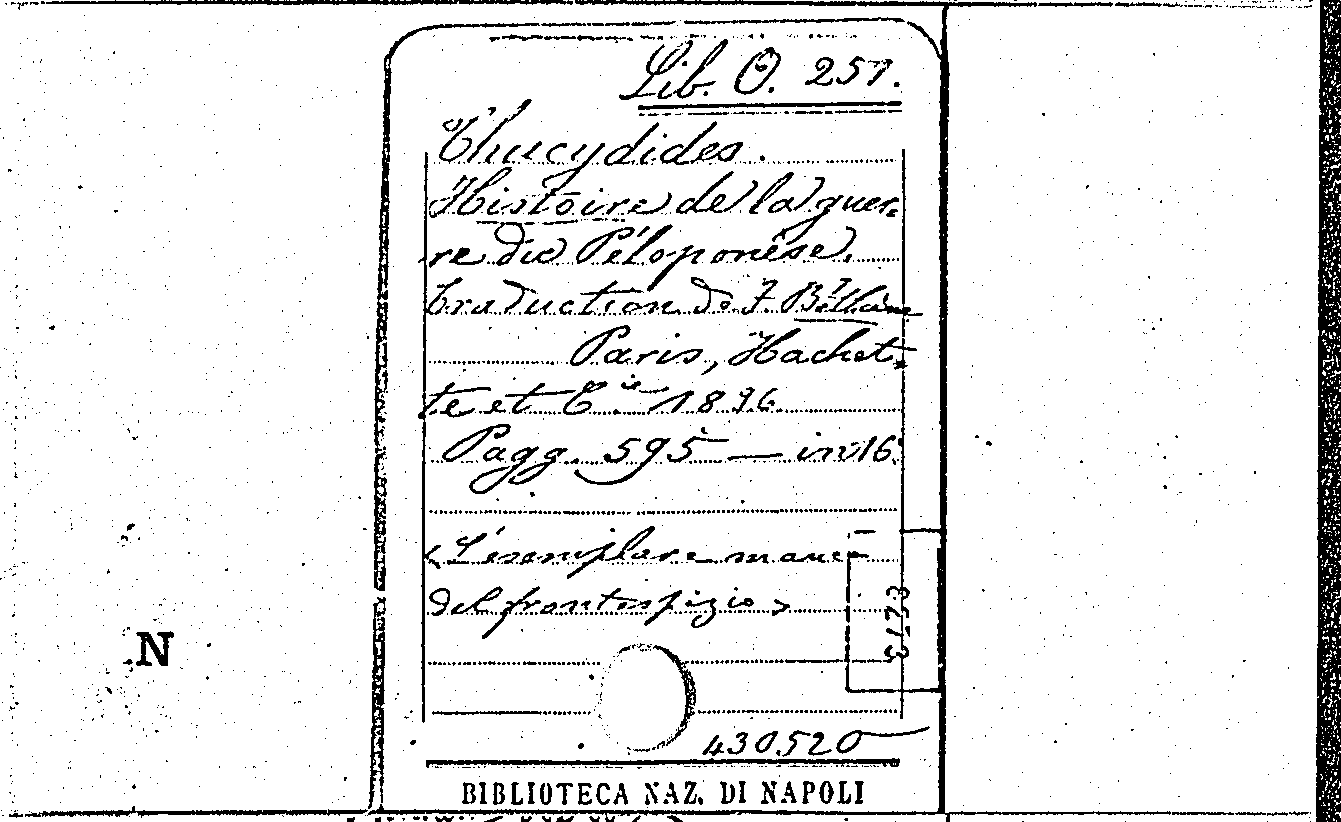 Lib. O. 257.
Thucydides.
Histoire de la guer-
re du Péloponèse.
traduction de J. Bétlain
Paris, Hachet-
te et C.ie 1896.
Pagg. 595 — in 16.
<L'esemplare manca
del frontespizio>
N
430520
BIBLIOTECA NAZ. DI NAPOLI